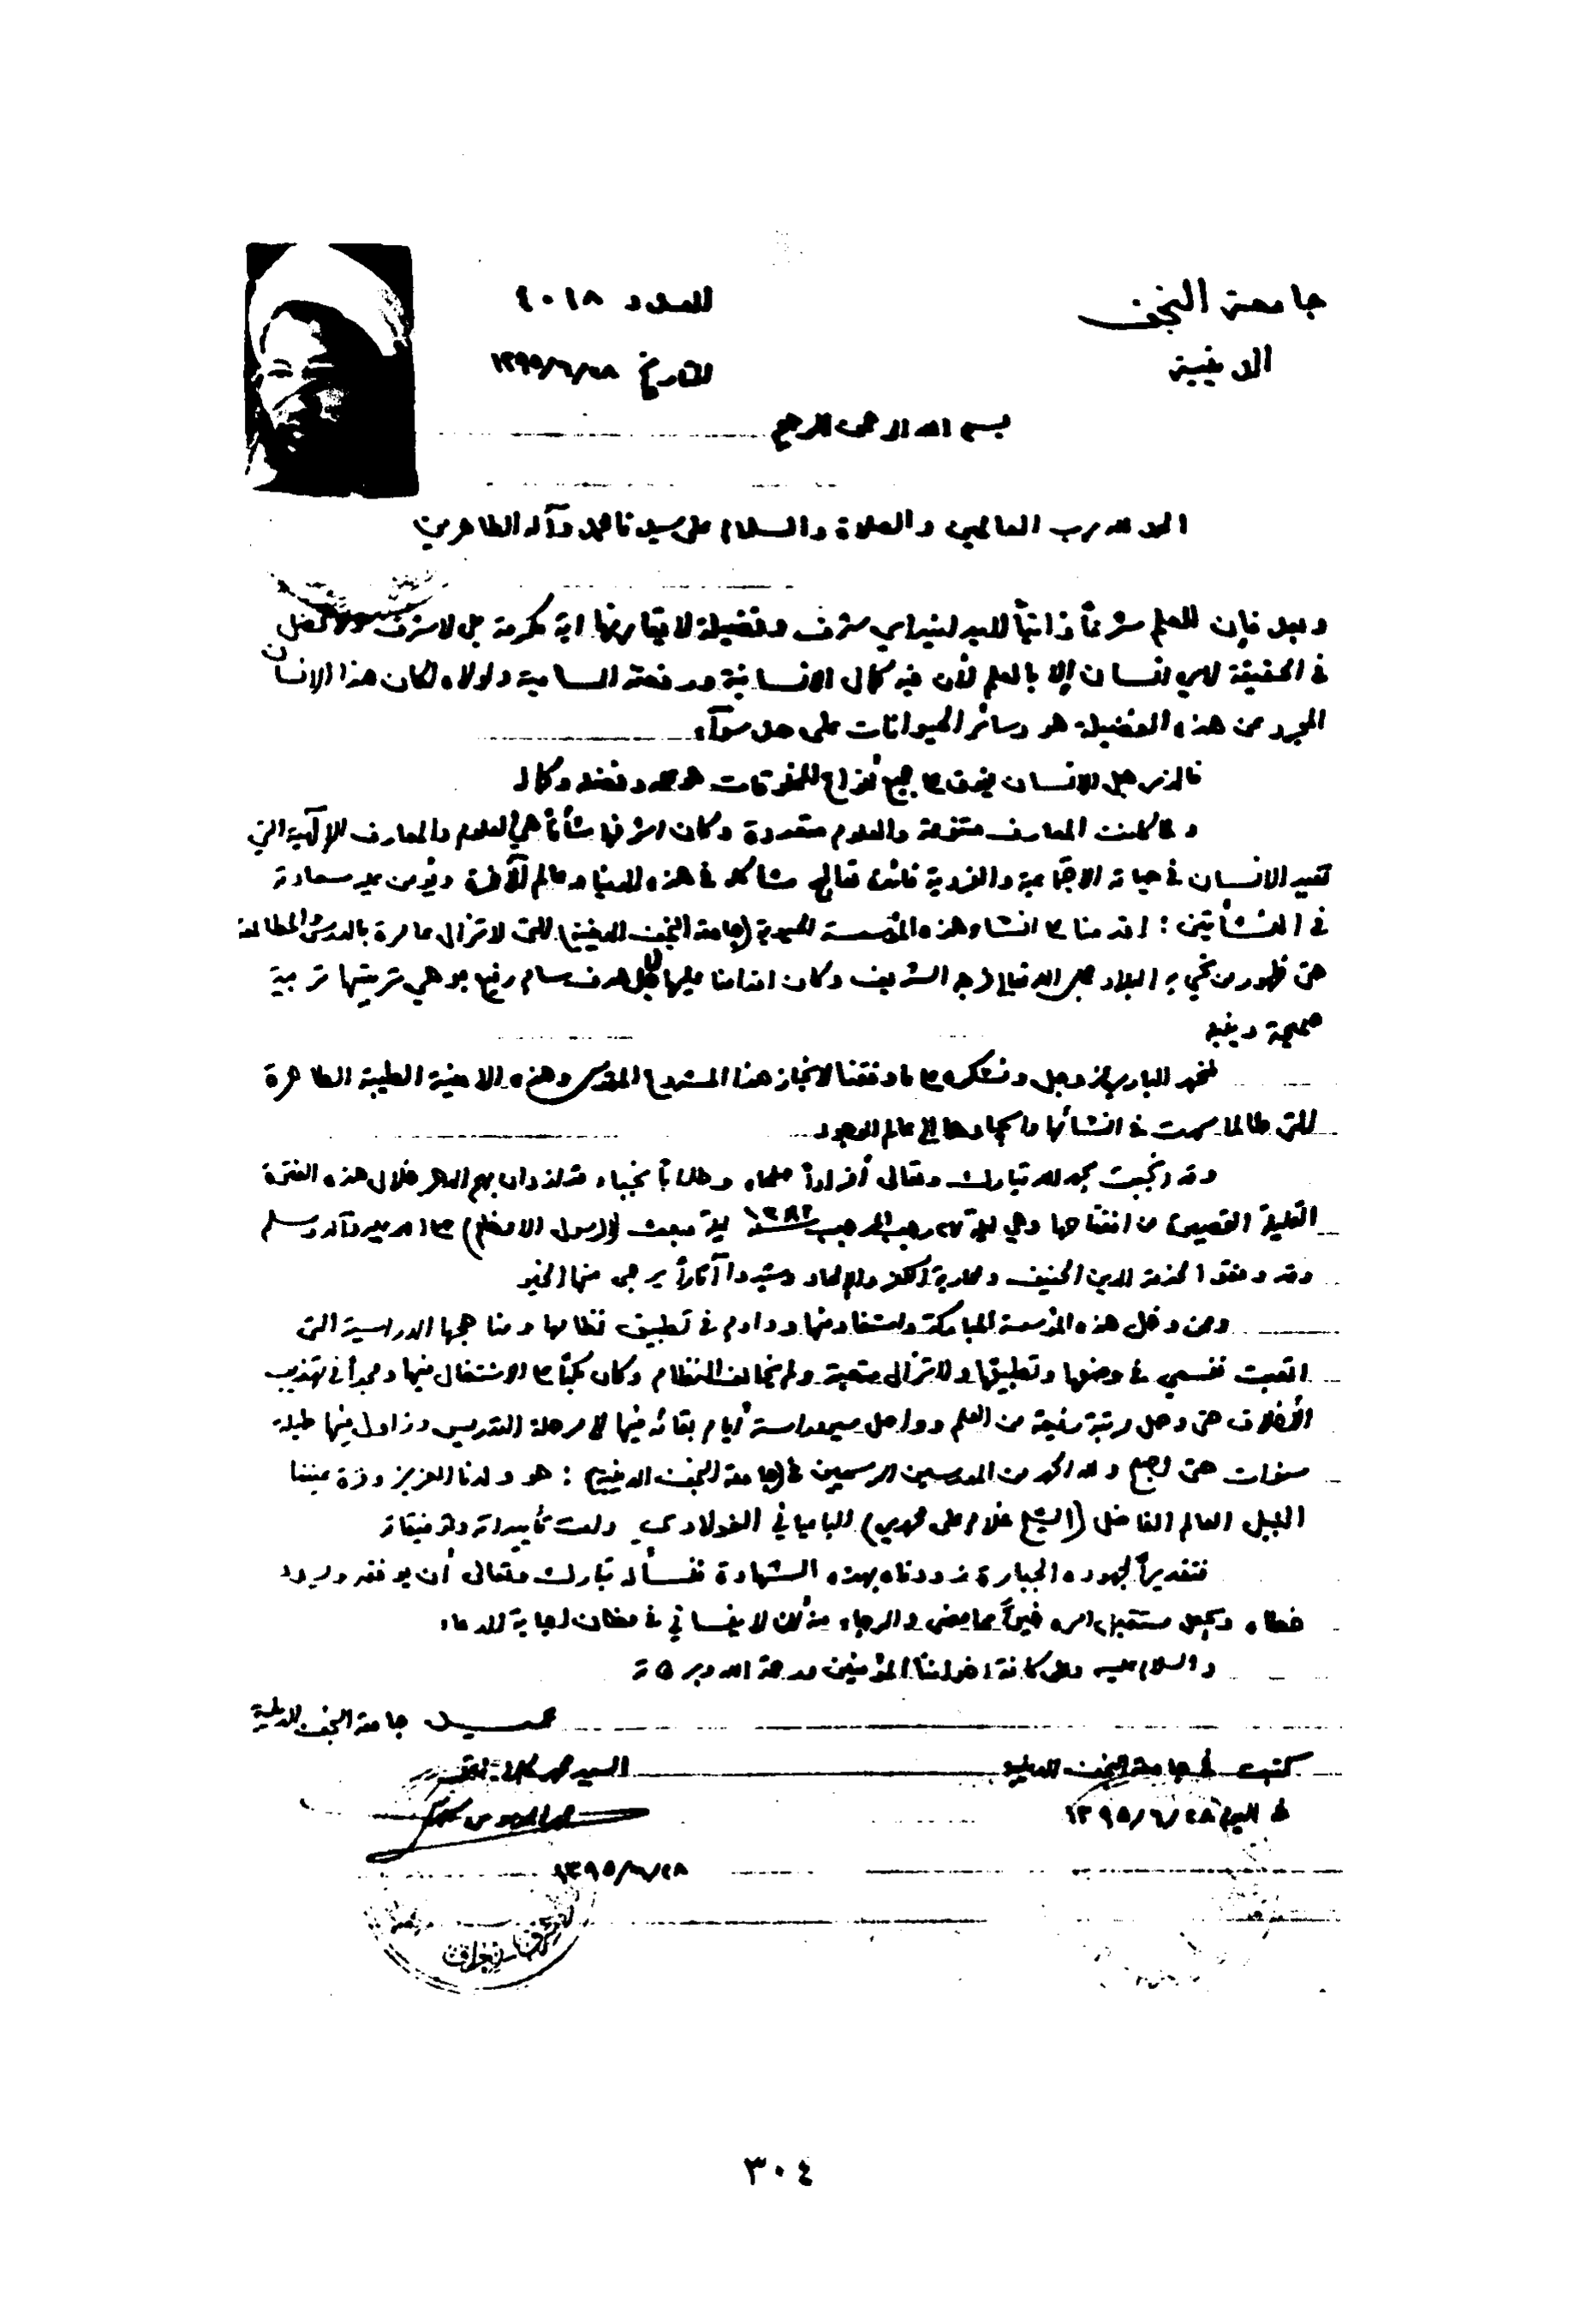 جامعة النجف
العدد ٤٠١٨
الدينية
التاريخ ١٣٩٥/٦/٢٨
بسم الله الرحمن الرحيم
الحمد لله رب العالمين والصلاة والسلام على سيدنا محمد وآله الطاهرين
وبعد فإن للعلم شرفاً ذاتياً للبد اي شرف وفضيلة لا يقارنها اية مكرمة بل لا شرف ولا فضل
في الحقيقة لأي انسان إلا بالعلم لأن فيه كمال الانسانية ورفعته السامية ولولاه لكان هذا الإنسان
المجرد عن هذه الفضيلة هو وسائر الحيوانات على حد سوآء
فالذي جعل الانسان يفوق جميع أنواع المخلوقات هو علمه وفضله وكماله
ولما كانت المعارف متنوعة والعلوم متعددة وكان اشرفها شأناً هي العلوم والمعارف الإلهية التي
تفيد الانسان في حياته الاجتماعية والفردية تعالج مشاكله في هذه الدنيا وعالم الآخرة سعادته
في النشأتين : اقدمنا على انشاء هذه المؤسسة الحيوية (جامعة النجف الدينية) التي لا تزال عامرة بالدرس والمطالعة
حتى ظهور من تحيى به البلاد عجل الله تعالى فرجه الشريف وكان اقدامنا عليها لهدف سام رفيع هي تربيتها تربية
صحيحة دينية
نحمد الباري عز وجل ونشكره على ما وفقنا لانجاز هذا المشروع المقدس وهذه الامنية الطيبة الطاهرة
التي طالما سهرت في انشائها وايجادها الى عالم الوجود
وقد أنجبت بحمد الله تبارك وتعالى أفراداً علماء وطلاباً نجباء خلال هذه الفترة
القليلة القصيرة من افتتاحها وهي ليلة ٢٧ رجب المرجب ١٣٨٢ ليلة مبعث (الرسول الاعظم) صلى الله عليه وآله وسلم
وقد وفقوا لخدمة الدين الحنيف ومحاربة الكفر والإلحاد وشيدوا آثاراً يرجى منها الخير
وممن دخل هذه المؤسسة المباركة واستفاد منها وداوم في تطبيق نظامها ومناهجها الدراسية التي
اتعبت نفسي في وضعها وتطبيقها ولا تزال متعبة ولم يخالف النظام وكان مجداً على الاشتغال فيها ومجداً في تهذيب
الأخلاق حتى وصل رتبة رفيعة من العلم وواصل دراسته أيام بقائه فيها الى مرحلة التدريس وزاول فيها طيلة
سنوات حتى اصبح ولله الحمد من المدرسين الرسميين في (جامعة النجف الدينية) : هو ولدنا العزيز وقرة عيننا
النبيل العالم الفاضل (الشيخ غلام علي محمدي) الباميانی الفولادي دامت تأييداته وتوفيقاته
فتقديراً لجهوده الجبارة زودناه بهذه الشهادة نسأله تبارك وتعالى أن يوفقه ويسدد
خطاه ويجعل مستقبل امره خيراً مما مضى والرجاء منه أن لا ينساني في مظان اجابة الدعاء
والسلام عليه وعلى كافة اخواننا المؤمنين ورحمة الله وبركاته
عميد جامعة النجف الدينية
كتبت في جامعة النجف الدينية
السيد محمد كلانتر
في اليوم ١٣٩٥/٦/٢٨
١٣٩٥/٦/٢٨
٣٠٤